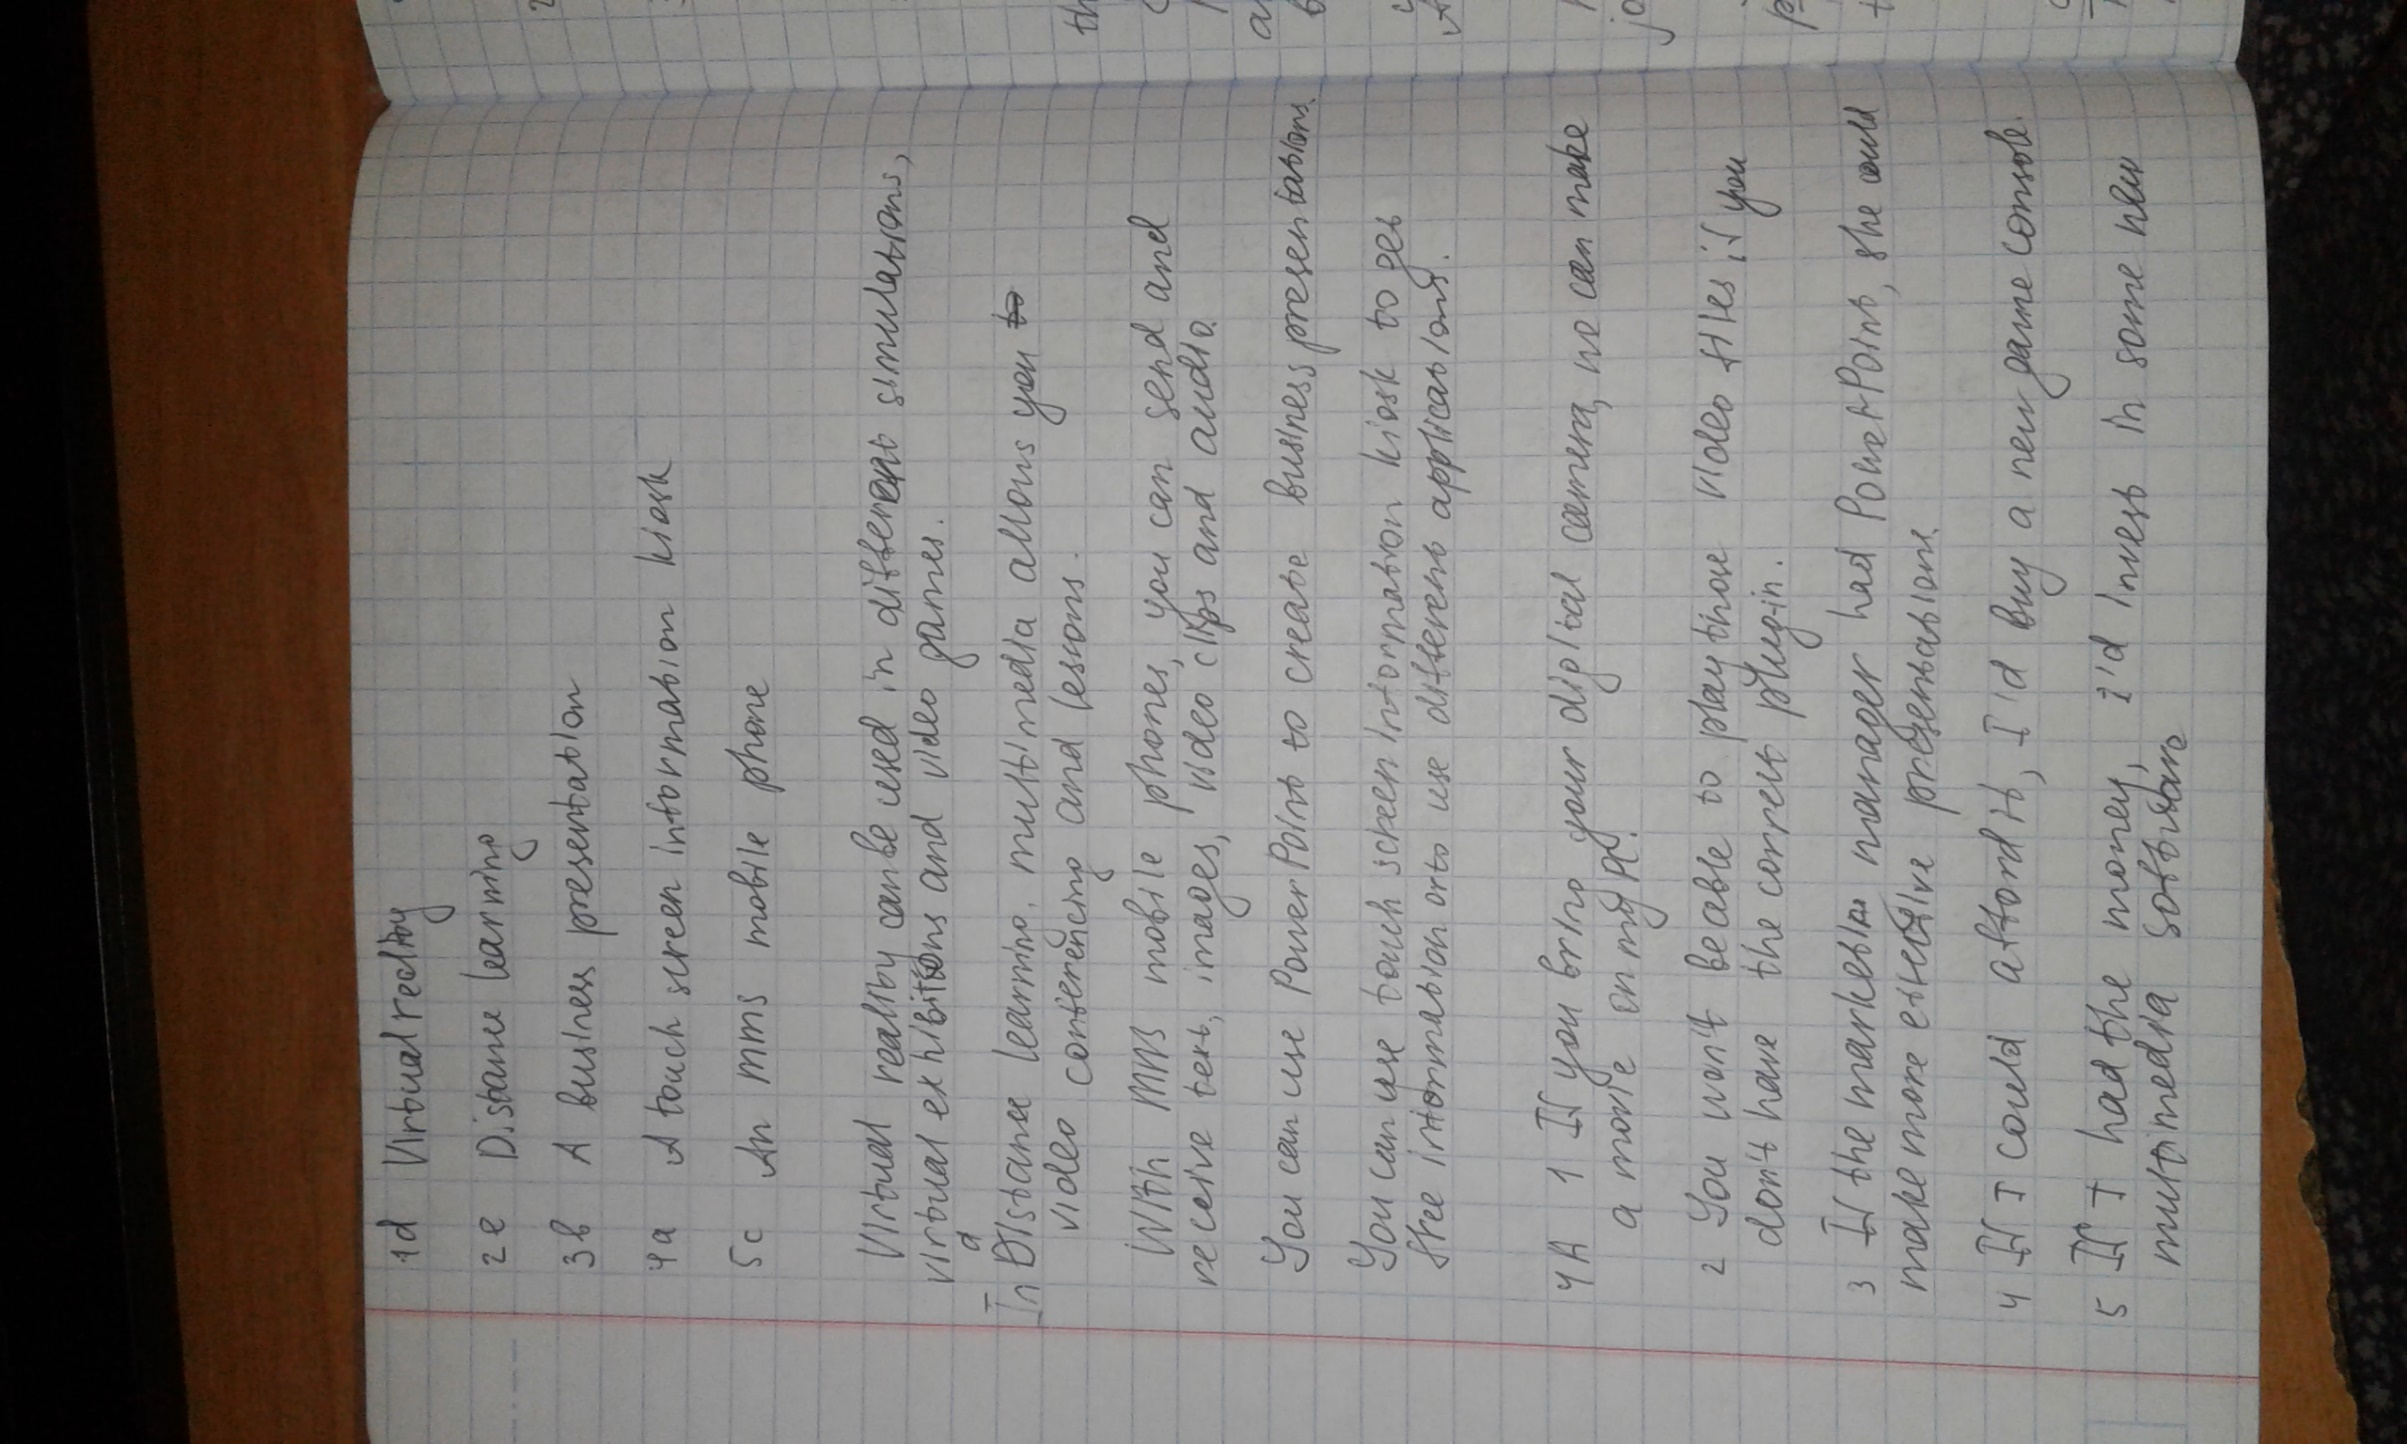 1d Virtual reality
2e Distance learning
3b A business presentation
4a A touch screen information kiosk
5c An MMS mobile phone
Virtual reality can be used in different simulations,
virtual exhibitions and video games.
In distance learning, multimedia allows you to
video conferencing and lessons.
With MMS mobile phones, you can send and
receive text, images, video clips and audio.
You can use PowerPoint to create business presentations.
You can use touch screen information kiosk to get
free information or to use different applications.
4A 1 If you bring your digital camera, we can make
a movie on my PC.
2 You won't be able to play those video files if you
don't have the correct plug-in.
3 If the marketin manager had PowerPoint, she could
make more effective presentations.
4 If I could afford it, I'd buy a new game console.
5 If I had the money, I'd invest in some new
multimedia software